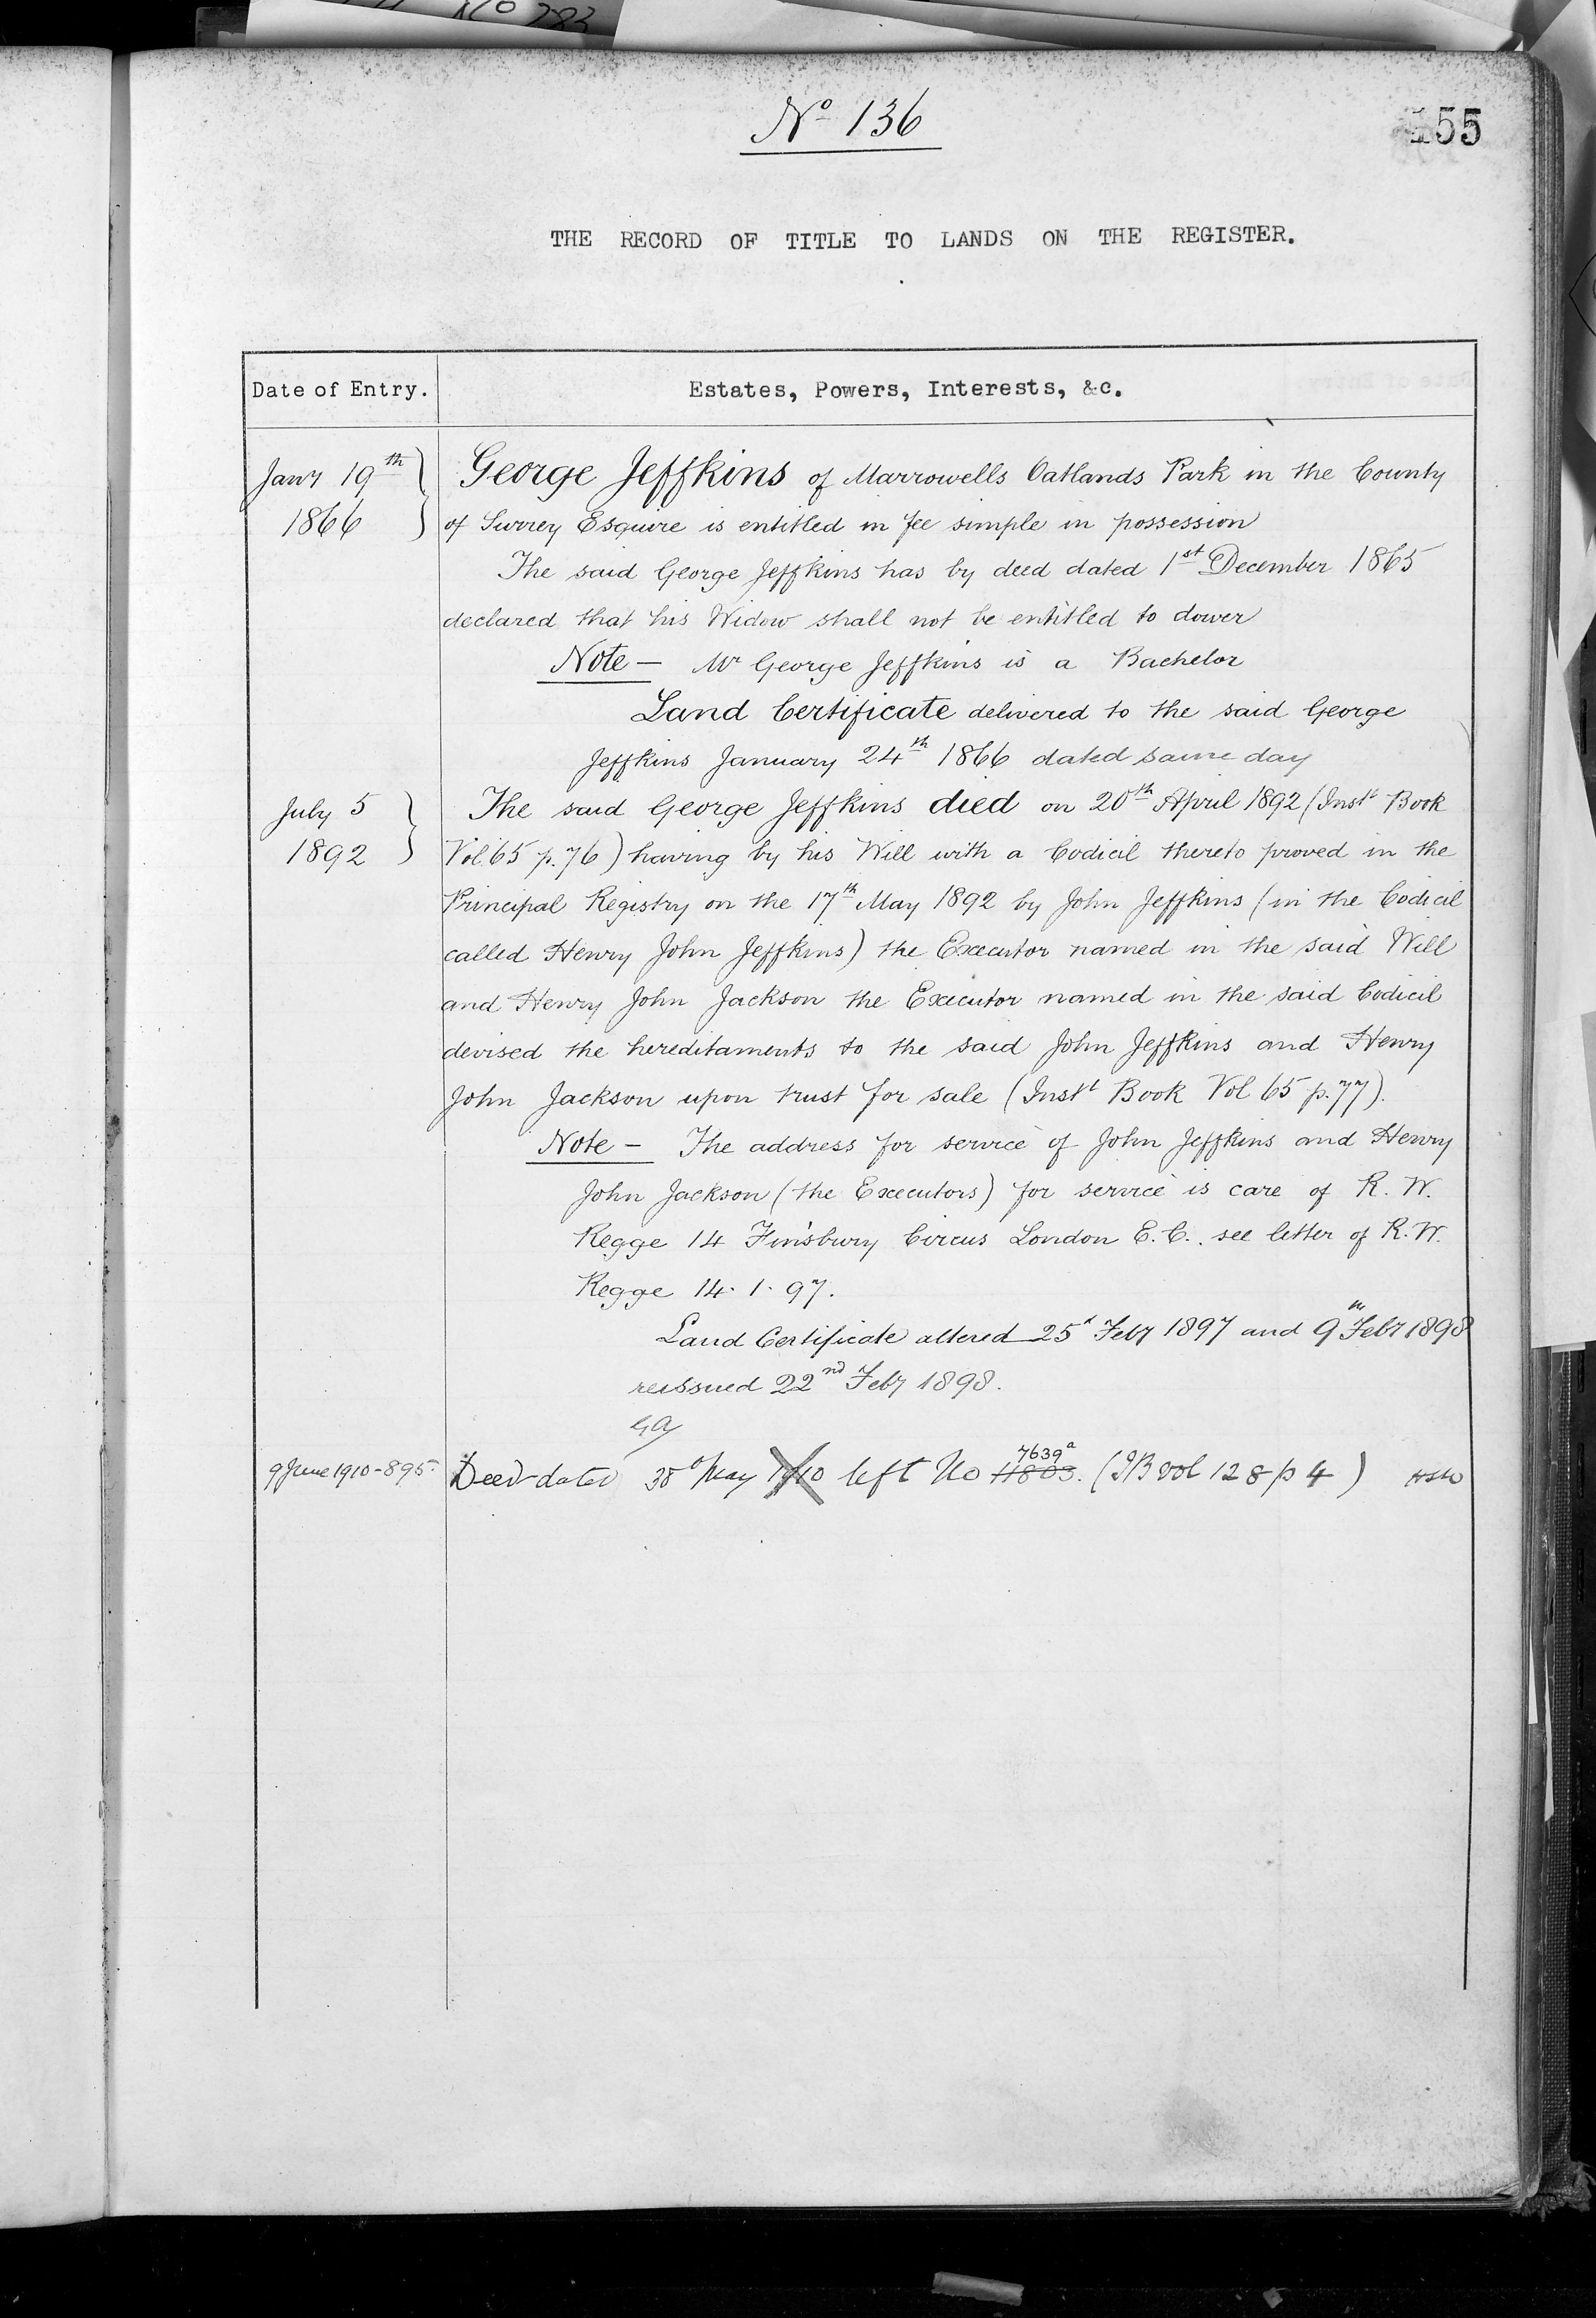 No 136
155
THE RECORD OF TITLE TO LANDS ON THE REGISTER.
Date of Entry. Estates, Powers, Interests, &c.
Jany 19th 1866
George Jeffkins of Marrowells Oatlands Park in the County
of Surrey Esquire is entitled in fee simple in possession
The said George Jeffkins has by deed dated 1st December 1865
declared that his Widow shall not be entitled to dower
Note – Mr George Jeffkins is a Bachelor
Land Certificate delivered to the said George
Jeffkins January 24th 1866 dated same day
July 5 1892
The said George Jeffkins died on 20th April 1892 (Inst Book
Vol. 65 p. 76) having by his Will with a Codicil thereto proved in the
Principal Registry on the 17th May 1892 by John Jeffkins (in the Codicil
called Henry John Jeffkins) the Executor named in the said Will
and Henry John Jackson the Executor named in the said Codicil
devised the hereditaments to the said John Jeffkins and Henry
John Jackson upon trust for sale (Inst Book Vol 65 p. 77).
Note – The address for service of John Jeffkins and Henry
John Jackson (the Executors) for service is care of R. W.
Regge 14 Finsbury Circus London E.C. see letter of R. W.
Regge 14. 1. 97.
Land Certificate altered 25th Feby 1897 and 9th Feby 1898
reissued 22nd Feby 1898.
9 June 1910 - 895. Deed dated May 1910 left No 11803. 7639a (IB vol 128 p 4)